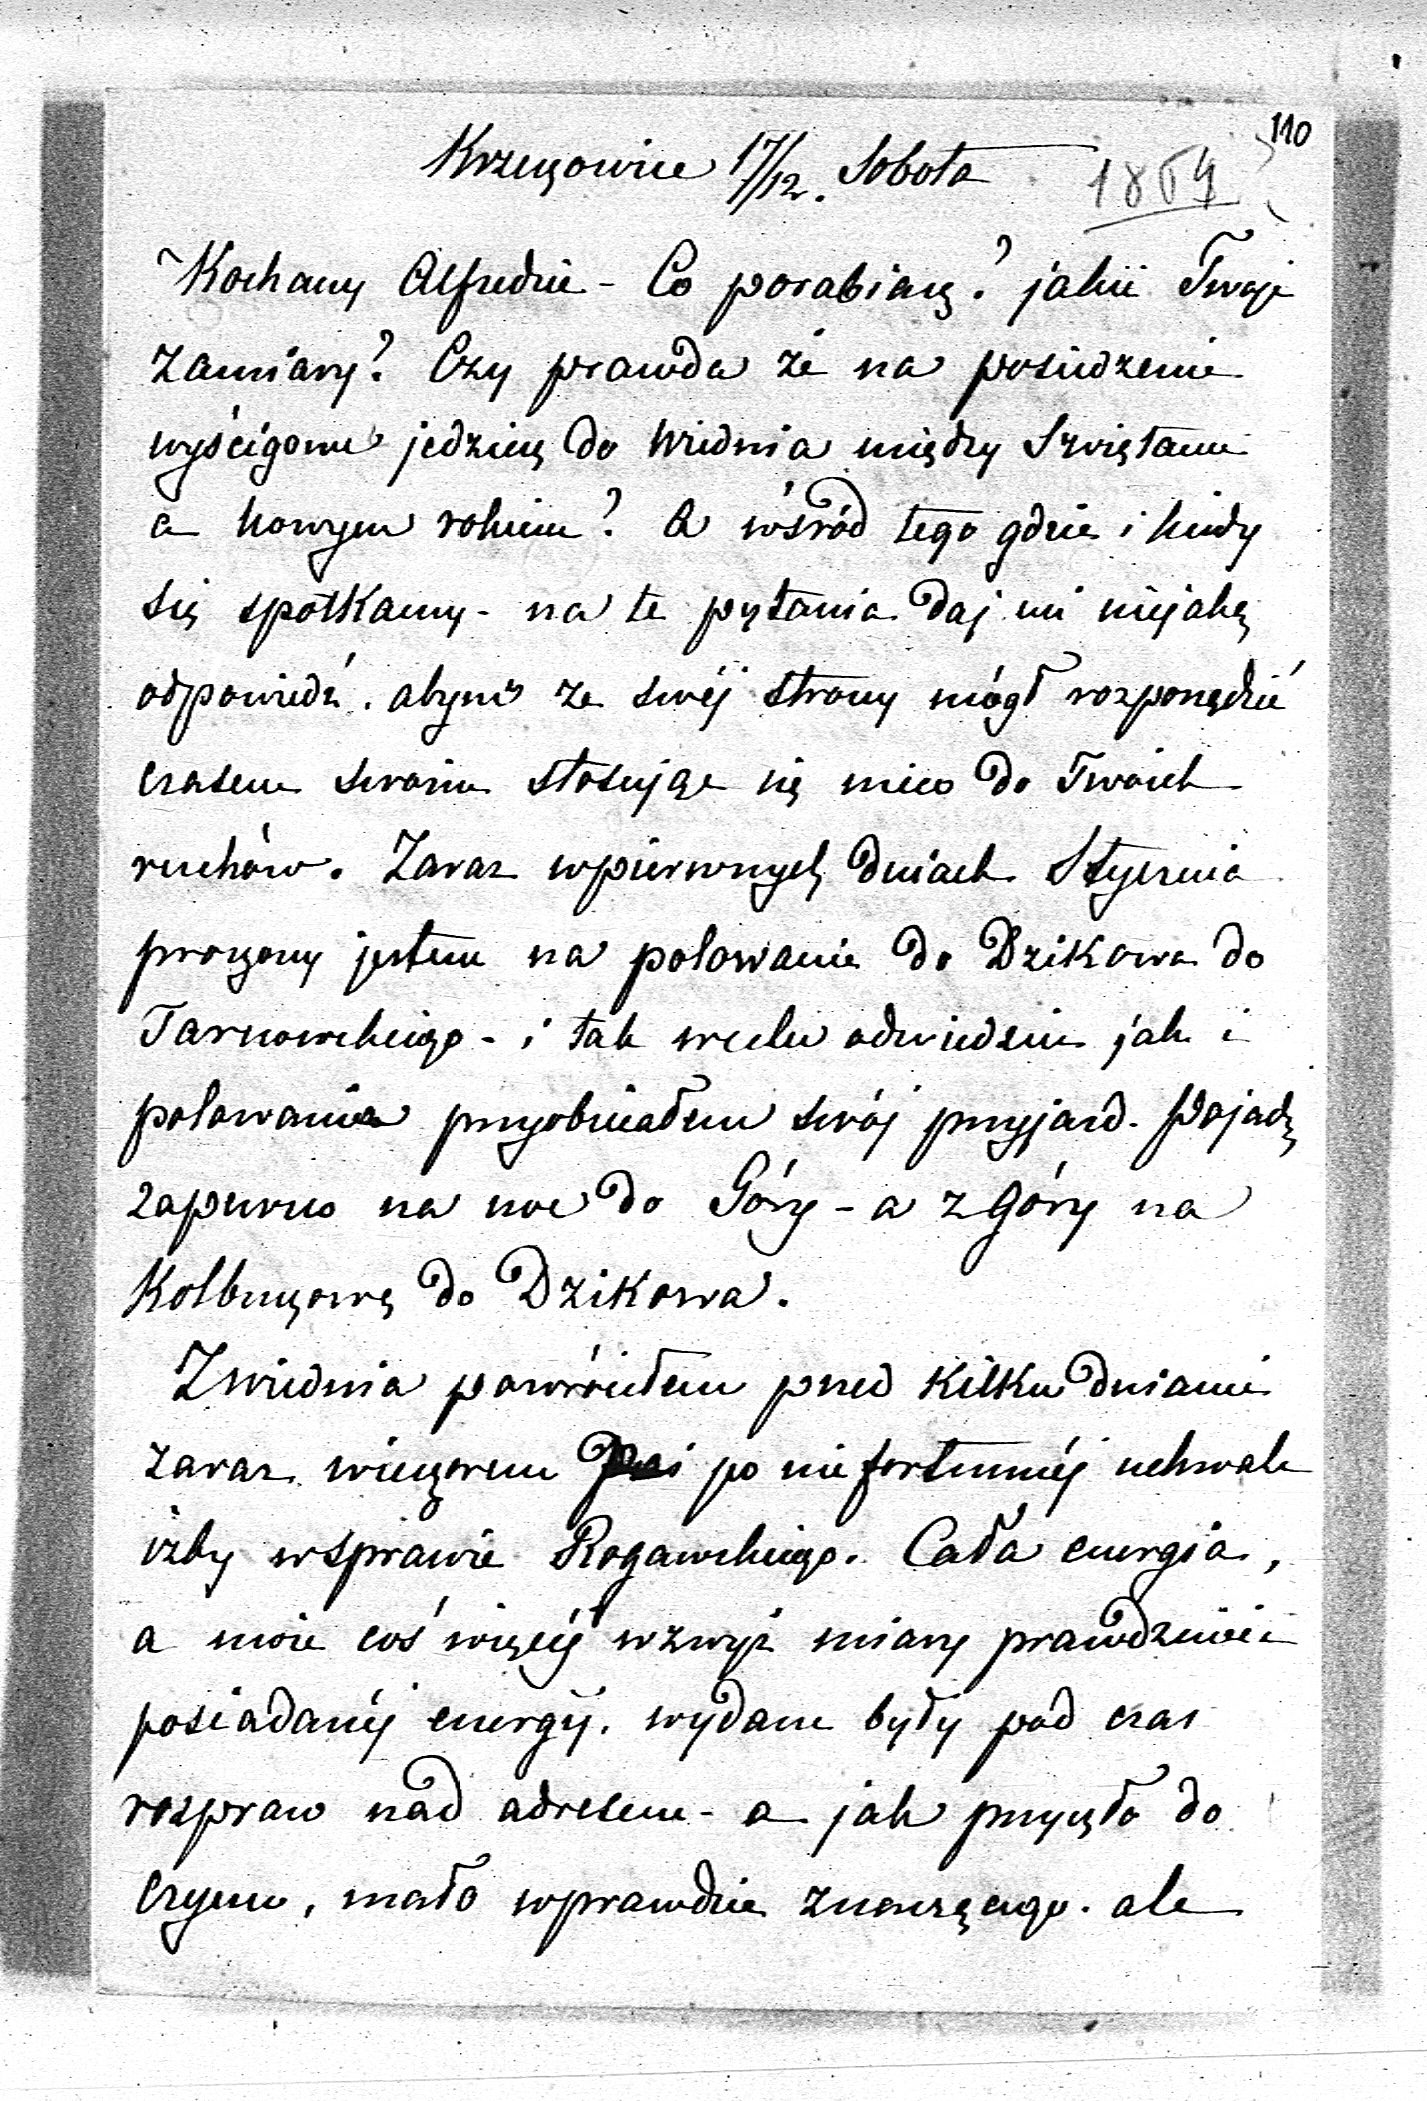 110
Krzeszowice 17/12. Sobota 1864
Kochany Alfredzie - Co porabiasz? jakie Twoje
zamiary? Czy prawda że na posiedzenie
wyścigowe jedziesz do Wiednia między Swiętami
a nowym rokiem? A wśród tego gdzie i kiedy
się spotkamy - na te pytania daj mi niejaką
odpowiedź. abym ze swéj strony mógł rozporządzić
czasem swoim stosując się nieco do Twoich
ruchów. Zaraz wpierwszych dniach Stycznia
proszony jestem na polowanie do Dzikowa do
Tarnowskiego - i tak wcelu odwiedzin jak i
polowania przyobiecałem swój przyjazd. Pojadę
zapewno na noc do Góry - a z Góry na
Kolbuszowę do Dzikowa.
Zwiednia powróciłem przed kilku dniami
zaraz wieczorem po niefortunnéj uchwale
izby wsprawie Rogawskiego. Cała energia,
a może coś więcéj wzwyż miary prawdziwie
posiadanéj energij. wydane były pod czas
rozpraw nad adresem - a jak przyszło do
czynu, mało wprawdzie znaczącego. ale